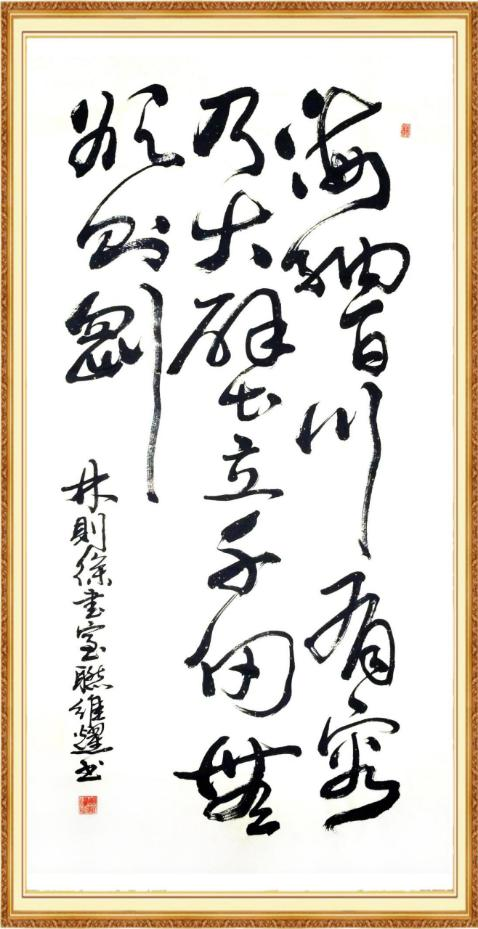 海纳百川有容
乃大壁立千仞無
欲则刚
林则徐书室联维耀书